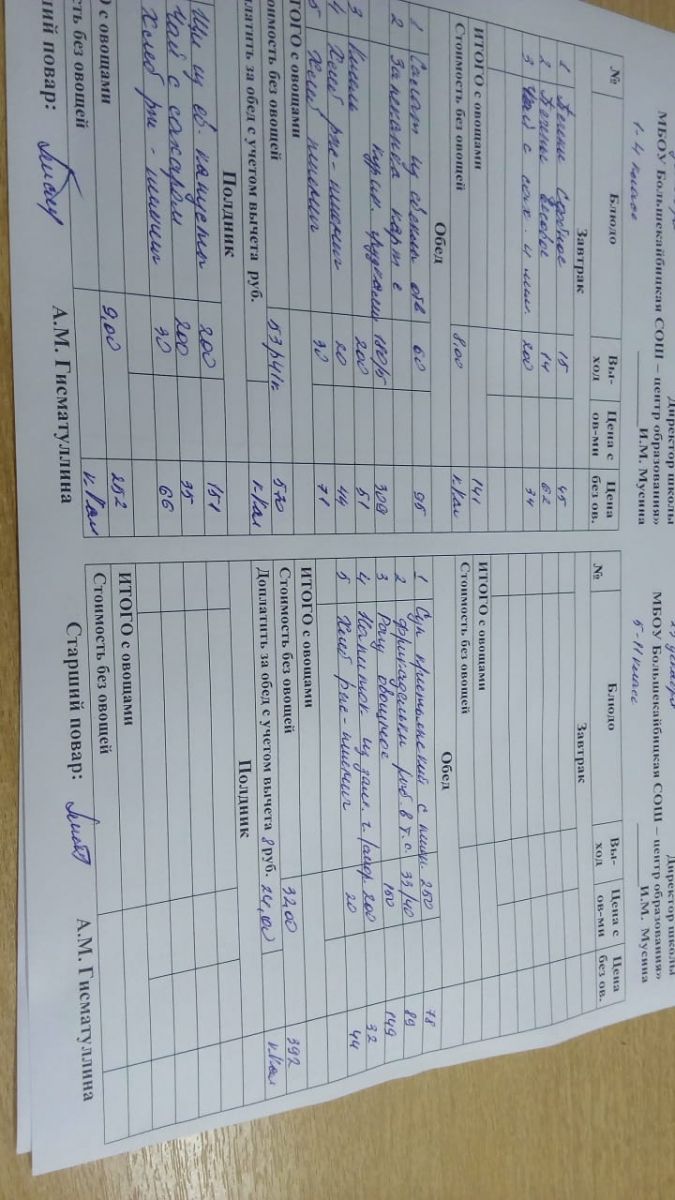 Директор школы
МБОУ Большекайбицкая СОШ – центр образования»
И.М. Мусина
1-4 классов
№ Блюдо Вы-ход Цена с ов-ми Цена без ов.
Завтрак
1 15 45
2 14 62
3 Чай с сах. и лим. 200 34
ИТОГО с овощами 141
Стоимость без овощей 8,00 к/кал
Обед
1 Салат из свеклы отв 60 95
2 Запеканка карт с
курин. грудками 180/5 309
3 Кисель 200 51
4 Хлеб рж-пшенич 20 44
5 Хлеб пшенич 30 71
ИТОГО с овощами 570
оимость без овощей 53р41к к/кал
платить за обед с учетом вычета руб.
Полдник
Щи из св. капусты 200 151
Чай с сахаром 200 35
Хлеб рж-пшенич 30 66
О с овощами 252
сть без овощей 9,00 к/кал
ший повар: А.М. Гисматуллина
Директор школы
МБОУ Большекайбицкая СОШ – центр образования»
И.М. Мусина
5-11 класс
№ Блюдо Вы-ход Цена с ов-ми Цена без ов.
Завтрак
ИТОГО с овощами
Стоимость без овощей
Обед
1 Суп крестьянский с 250 78
2 Фрикадельки рыб. в т.с. 35/40 89
3 Рагу овощное 150 149
4 Напиток из зам. 200 32
5 Хлеб рж-пшенич 20 44
ИТОГО с овощами 392
Стоимость без овощей 32,00 к/кал
Доплатить за обед с учетом вычета 8 руб. 24,00
Полдник
ИТОГО с овощами
Стоимость без овощей
Старший повар: А.М. Гисматуллина